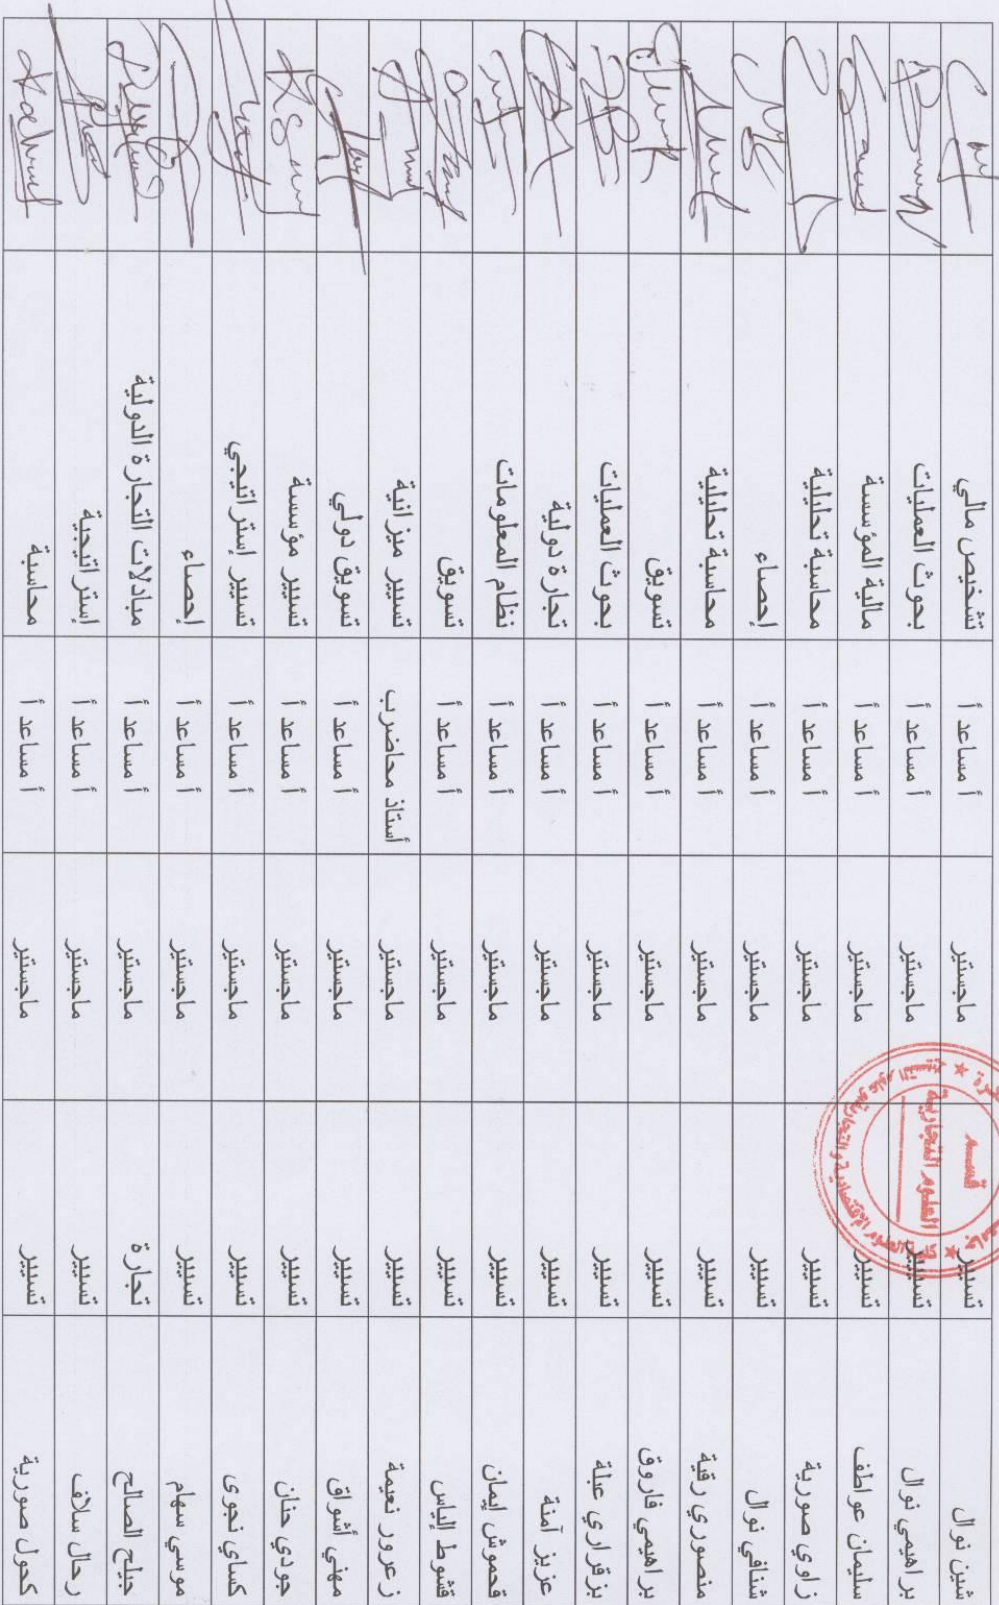 شين نوال تسيير ماجستير أ مساعد أ تشخيص مالي
براهيمي نوال تسيير ماجستير أ مساعد أ بحوث العمليات
سليمان عواطف تسيير ماجستير أ مساعد أ مالية المؤسسة
زاوي صورية تسيير ماجستير أ مساعد أ محاسبة تحليلية
شنافي نوال تسيير ماجستير أ مساعد أ إحصاء
منصوري رقية تسيير ماجستير أ مساعد أ محاسبة تحليلية
براهيمي فاروق تسيير ماجستير أ مساعد أ تسويق
بزقراري عبلة تسيير ماجستير أ مساعد أ بحوث العمليات
عزيز آمنة تسيير ماجستير أ مساعد أ تجارة دولية
قحموش إيمان تسيير ماجستير أ مساعد أ نظام المعلومات
قشوط إلياس تسيير ماجستير أ مساعد أ تسويق
زعرور نعيمة تسيير ماجستير أستاذ محاضر ب تسيير ميزانية
مهني أشواق تسيير ماجستير أ مساعد أ تسويق دولي
جودي حنان تسيير ماجستير أ مساعد أ تسيير مؤسسة
كساي نجوى تسيير ماجستير أ مساعد أ تسيير إستراتيجي
موسي سهام تسيير ماجستير أ مساعد أ إحصاء
جبلح الصالح تجارة ماجستير أ مساعد أ مبادلات التجارة الدولية
رحال سلاف تسيير ماجستير أ مساعد أ إستراتيجية
كحول صورية تسيير ماجستير أ مساعد أ محاسبة
قسم
العلوم التجارية